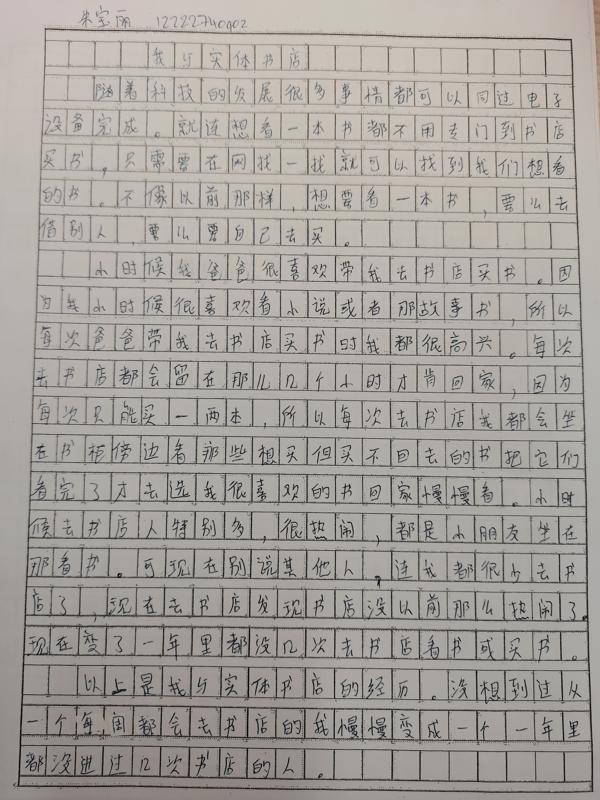 朱宝丽 12222740902
我与实体书店
随着科技的发展很多事情都可以同过电子
设备完成。就连想看一本书都不用专门到书店
买书，只需要在网找一找就可以找到我们想看
的书。不像以前那样，想要看一本书，要么去
借别人，要么要自己去买。
小时候我爸爸很喜欢带我去书店买书。因
为我小时候很喜欢看小说或者那故事书，所以
每次爸爸带我去书店买书时我都很高兴。每次
去书店都会留在那儿几个小时才肯回家，因为
每次只能买一两本，所以每次去书店我都会坐
在书柜傍边看那些想买但买不回去的书把它们
看完了才去选我很喜欢的书回家慢慢看。小时
候去书店人特别多，很热闹，都是小朋友坐在
那看书。可现在别说其他人，连我都很少去书
店了，现在去书店发现书店没以前那么热闹了。
现在变了一年里都没几次去书店看书或买书。
以上是我与实体书店的经历。没想到过从
一个每周都会去书店的我慢慢变成一个一年里
都没进过几次书店的人。